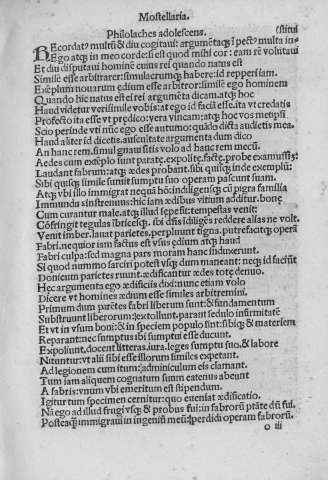 Mostellaria.
Philolaches adolescens. (stitui
REcordatꝰ multũ & diu cogitaui: argumẽtaqꝫ ĩ pectꝰ multa in⸗
Ego atqꝫ in meo corde: si est quod mihi cor: eam rẽ volutaui
Et diu disputaui hominẽ cuius rei quando natus est
Similẽ esse arbitrarer: simulacrumqꝫ habere: id repperi iam.
Exẽplum nouarum ędium esse arbitror: similẽ ego hominem
Quando hic natus est: ei rei argumẽta dicam. atqꝫ hoc
Haud videtur verisimile vobis: at ego id faciã esse. ita vt credatis
Profecto ita esse vt prędico: vera vincam: atqꝫ hoc vos metipsi
Scio perinde vti nũc ego esse autumo: quãdo dicta audietis mea
Haud aliter id dicetis. auscultate argumenta dum dico
An hanc rem. simul gnaui sitis volo ad hanc rem mecũ.
Aedes cum extẽplo sunt paratę. expolitę. factę. probe examussȷ̃:
Laudant fabrum: atqꝫ ædes probant. sibi quisqꝫ inde exemplũ:
Sibi quisqꝫ simile sumit sumptu suo operam pascunt suam.
Atqꝫ vbi illo immigrat nequã hõ: indilĩgensqꝫ cũ pigra familia
Immundus instrenuus: hic iam ædibus vitium additur. bonę
Cum curantur male. atqꝫ illud sępe fit: tempestas venit:
Cõfringit tegulas ĩbricesqꝫ. ibi dñs ĩdiligẽs reddere alias ne volt.
Venit imber. lauat parietes. perpluunt tigna. putrefacitqꝫ operã
Fabri. nequior iam factus est vsus ędium atqꝫ haud
Fabri culpa: sed magna pars moram hanc induxerunt.
Si quod nummo sarciri potest vsqꝫ dum maneant: neqꝫ id faciũt
Donicum parietes ruunt. ædificantur ædes totę denuo.
Hęc argumenta ego ædificiis dixi: nunc etiam volo
Dicere vt homines ædium esse similes arbitremini.
Primum dum parẽtes fabri liberum sunt: & fundamentum
Substruunt liberorum: extollunt. parant sedulo in firmitatẽ
Et vt in vsum boni: & in speciem populo sint: sibiqꝫ & materiem
Reparant: nec sumptus ibi sumptui esse ducunt.
Expoliunt. docent litteras. iura. leges sumptu suo. & labore
Nituntur: vt alii sibi esse illorum similes expetant.
Ad legionem cum itum: adminiculum eis clamant.
Tum iam aliquem cognatum suum eatenus abeunt
A fabris: vnum vbi emeritum est stipendum.
Igitur tum specimen cernitur: quo eueniat ædificatio.
Nã ego ad illud frugi vsqꝫ & probus fui: in fabrorũ ptãte dũ fui.
Posteaqꝫ immigraui in ingeniũ meũ: perdidi operam fabrorũ.
o iii